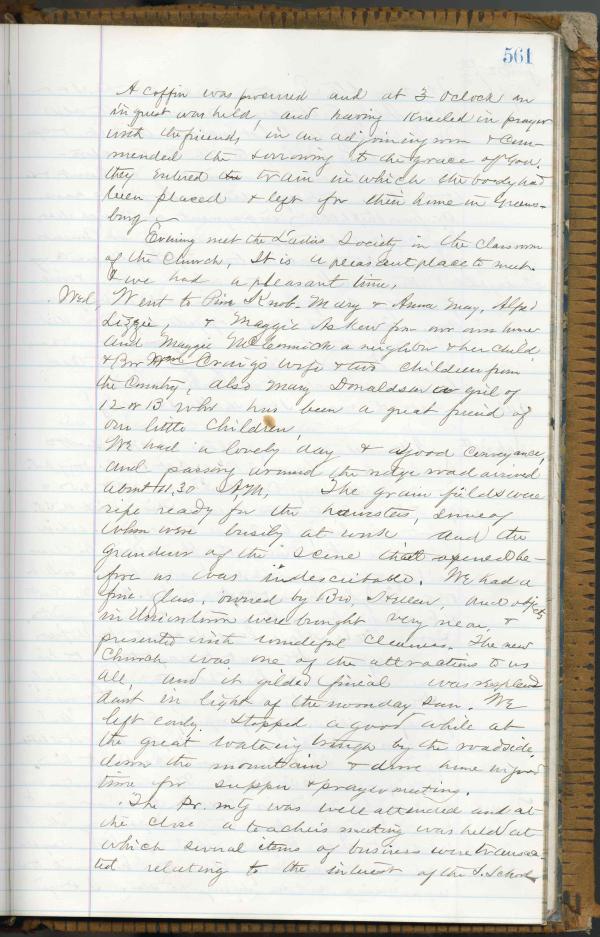 561
A coffin was procured and at 3 Oclock an
inquest was held, and having kneeled in prayer
with the friends, in an adjoining room & com-
mended the sorrowing to the grace of God,
they entered the train in which the body had
been placed & left for their home in Greens-
burg.
Evening met the Ladies Society in the Classroom
of the Church, It is a pleasant place to meet.
& we had a pleasant time,
Wed, Went to Pine Knob. Mary & Anna May, Alfd
Lizzie & Maggie Askew from our own home
and Maggie McCormick a neighbor & her child
& Bro Wm Craigs wife & two children from
the Country, also Mary Donaldson a girl of
12 or 13 who has been a great friend of
our little Children,
We had a lovely day & a good conveyance,
and passing around the ridge road arrived
about 11,30 A,M, The grain fields were
ripe ready for the harvesters, some of
whom were busily at work and the
grandeur of the scene that opened be-
fore us was indescribable. We had a
fine glass, owned by Bro, Hellen, and objects
in Uniontown were brought very near, &
presented with wonderful clearness. The new
Church was one of the attractions to us
all, and it gilded finial was resplend
dant in light of the noonday sun. We
left early. Stopped a good while at
the great watering trough by the roadside,
down the mountain & drove home in good
time for supper & prayer meeting.
The Pr. mtg was well attended and at
the close a teachers meeting was held at
which several items of business were transac-
ted relating to the interest of the S. School